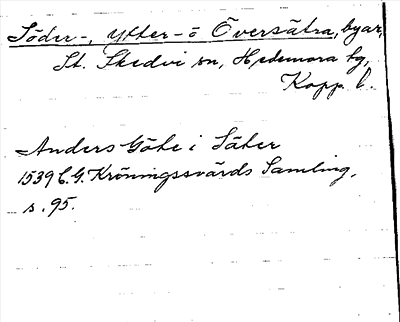 Söder-, Ytter- o Översätra, byar,
St. Skedvi sn, Hedemora tg,
Kopp. l.
Anders Göke i Säter
1539 C. G. Kröningssvärds Samling,
s. 95.